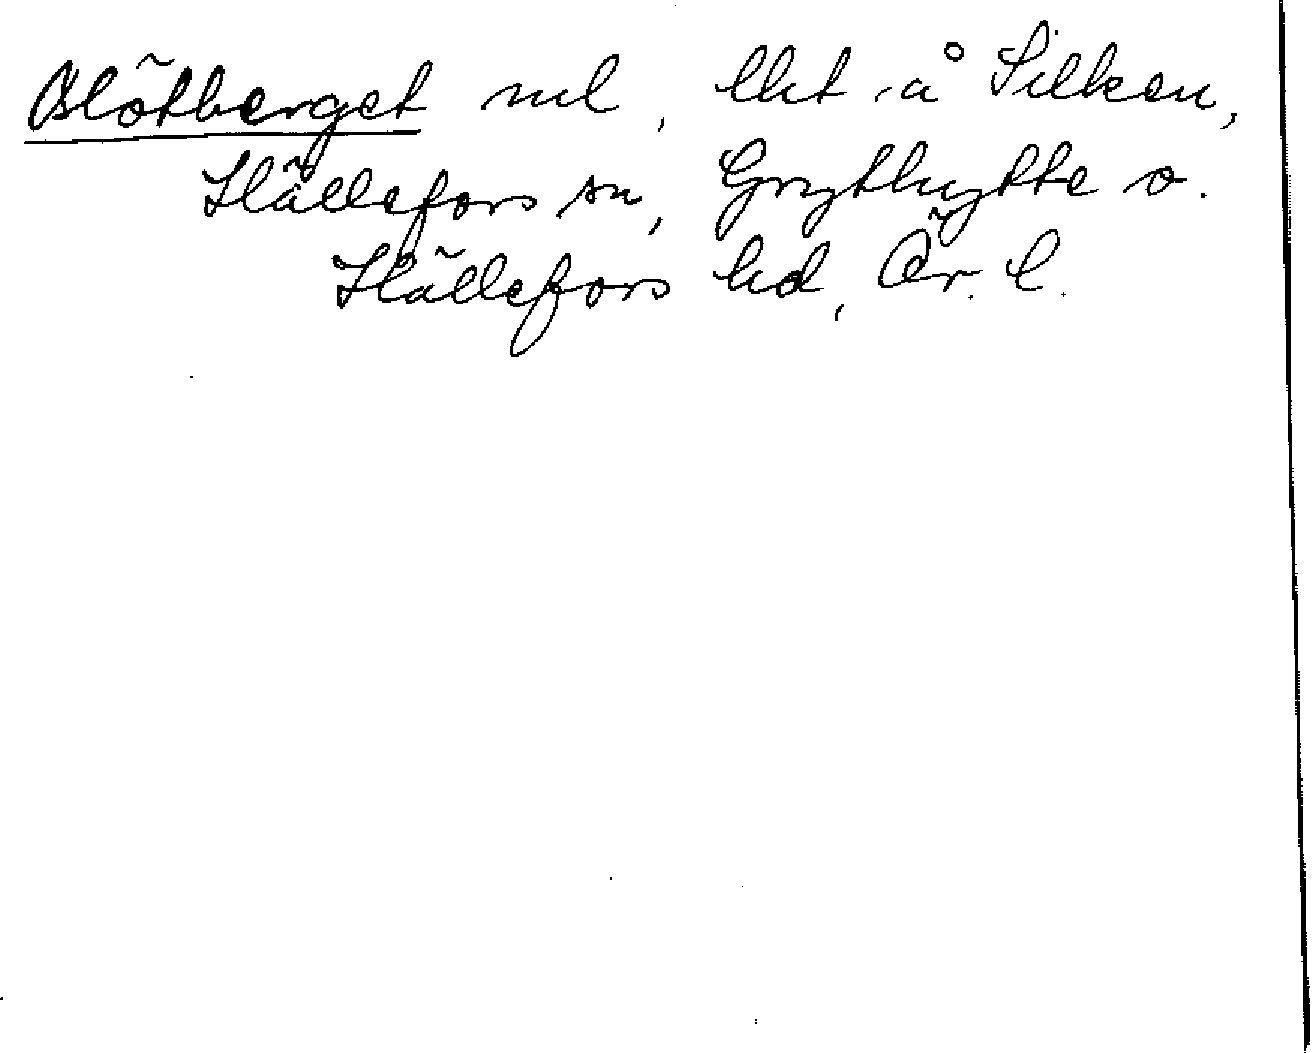 Blötberget nul, lht å Silken,
Hällefors sn, Grythytte o.
Hällefors hd, Ör. l.